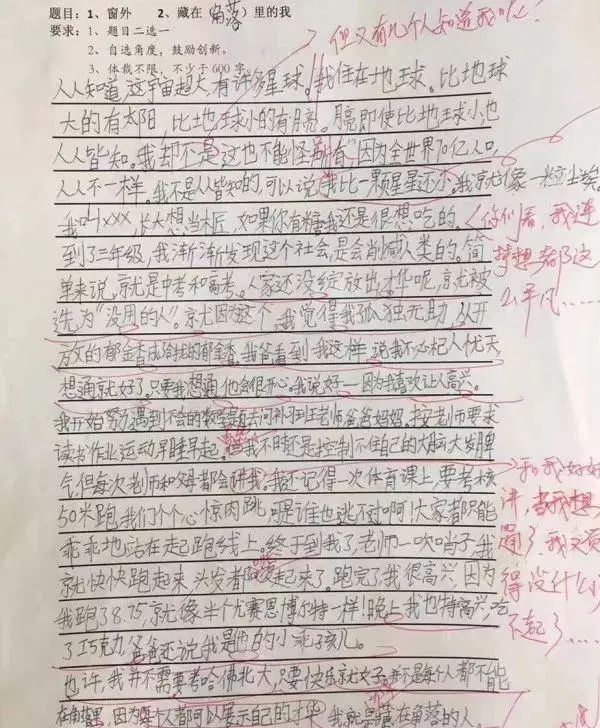 题目:1、窗外 2、藏在(角落)里的我
要求:1、题目二选一
2、自选角度,鼓励创新。
3、体裁不限,不少于600字
但又有几个人知道我呢?
人人知道,这宇宙超大有许多星球。我住在地球。比地球
大的有太阳,比地球小的有月亮。月亮即使比地球小,也
人人皆知。我却不是这也不能怪 因为全世界70亿人口,
人人不一样。我不是人皆知的,可以说我比一颗星星还小。我就像一粒尘埃。
我叫xxx,长大想当木匠,如果你有糖我还是很想吃的。
(你们看,我连梦想都这么平凡……
到了三年级,我渐渐发现这个社会,是会消减人类的。简
单来说,就是中考和高考。人家还没绽放出才华呢,就被
选为“没用的人”。就因为这个,我觉得我孤独无助,从开
放的郁金香成给我的郁金香。我爸看到我这样,说我不必杞人忧天
想通就好了。只要我想通,他会很开心。我说好——因为我喜欢让人高兴。
我开始努力,遇到不会的数学题去问补习班老师爸爸妈妈。按老师要求
读书作业运动早睡早起。但我不时还是控制不住自己的大脑大发脾
气,但每次老师和父母都会讲我。我还记得一次体育课上,要考核
和我好好讲,当我想通了,我又觉得没什么不起了……
50米跑,我们个个心惊肉跳,可是谁也逃不过啊!大家都只能
乖乖地站在起跑线上。终于到我了,老师一吹哨子,我
就快快跑起来,头发都 起来了。跑完了,我很高兴,因为
我跑了8.75,就像半个尤赛恩博尔特一样!晚上,我也特高兴,吃
了巧克力,爸爸还说我是他的小乖孩儿。
也许,我并不需要考哈佛北大,只要快乐就好。并不是每个人都不能
在角落里,因为每个人都可以展示自己的才华。我就是藏在角落的人。